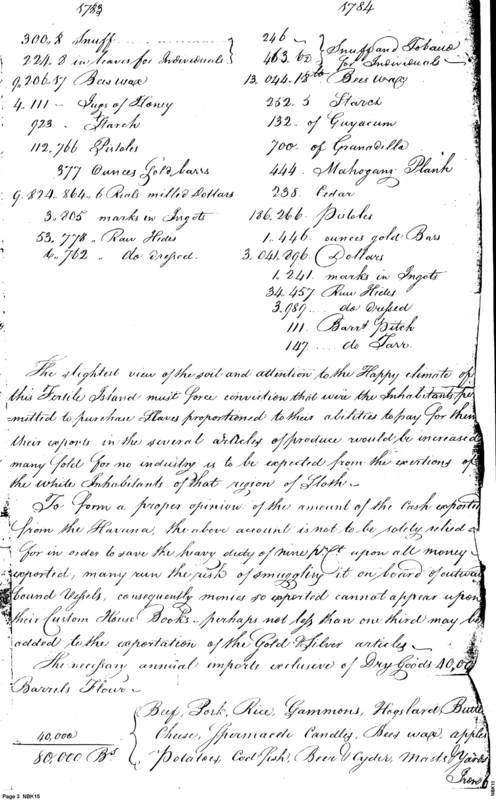 1783
300.8 Snuff
224.8 in leaves for Individuals
9.206.17 Bees wax
4.111 Jugs of Honey
923 Starch
112.766 Pistoles
377 Ounces Gold barrs
9.824.864.6 Rials milled Dollars
3.205 marks in Ingots
53.778 Raw Hides
6.762 do dressed.
1784
246
463.62 Snuff and Tobacco for Individuals
13.044.18 lb Bees wax
252.5 Starch
132. of Guyacum
700. of Granadilla
444. Mahogany Plank
238. Cedar
186.266. Pistoles
1.446. ounces gold Bars
3.041.896. Dollars
1.241 marks in Ingots
34.457. Raw Hides
3.989 do dressed
111. Barrs Pitch
147 do Tarr.
The slightest view of the soil and attention to the Happy climate of
this Fertile Island must force conviction that were the Inhabitants per
mitted to purchase Slaves proportioned to their abilities to pay for them
their exports in the several articles of produce would be increased
many fold for no industry is to be expected from the exertions of
the white Inhabitants of that region of Sloth.
To form a proper opinion of the amount of the Cash exported
from the Havana, the above account is not to be solely relied o
for in order to save the heavy duty of nine pr Ct upon all money
exported, many run the risk of smuggling it on board of outwar
bound Vessels, consequently monies so exported cannot appear upon
their Custom House Books perhaps not less than one third may be
added to the exportation of the Gold & Silver articles
The necessary annual imports exclusive of Dry Goods 40,00
Barrels Flour
40,000
80,000 Bs
Beef, Pork, Rice, Gammons, Hogslard, Butte
Cheese, Spermaceti Candles, Bees wax, apples
Potatoes, Cod Fish, Beer & Cyder, Masts, Yards
Irons
Page 3 NBK15
NBK15